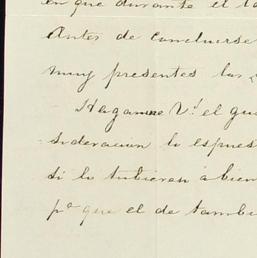 en que durante el
Antes de concluirse
muy presentes las
Hagame V.d el gus
sideracion lo espues
si lo tubieran a bien
p.a que el de tambi